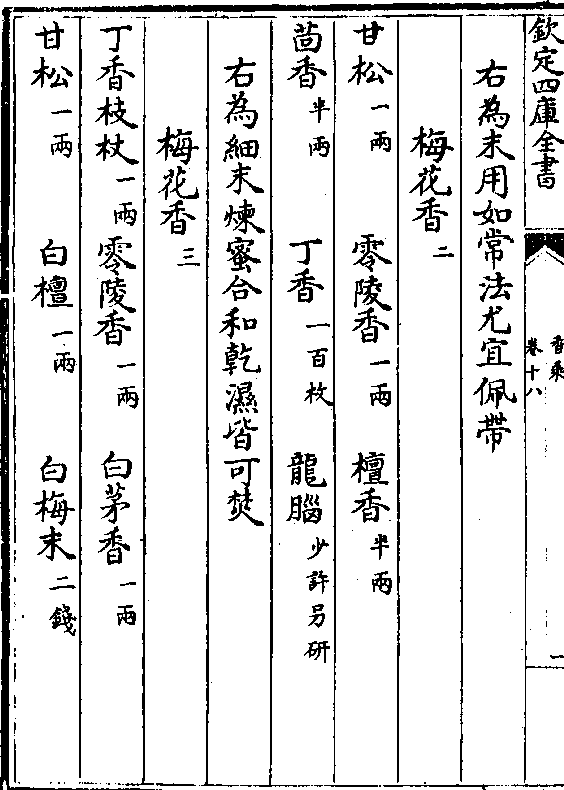 欽定四庫全書
香乘
卷十八
一
右為末用如常法尤宜佩帶
梅花香二
甘松一兩 零陵香一兩 檀香半兩
茴香半兩 丁香一百枚 龍腦少許另研
右為細末煉蜜合和乾濕皆可焚
梅花香三
丁香枝杖一兩 零陵香一兩 白茅香一兩
甘松一兩 白檀一兩 白梅末二錢